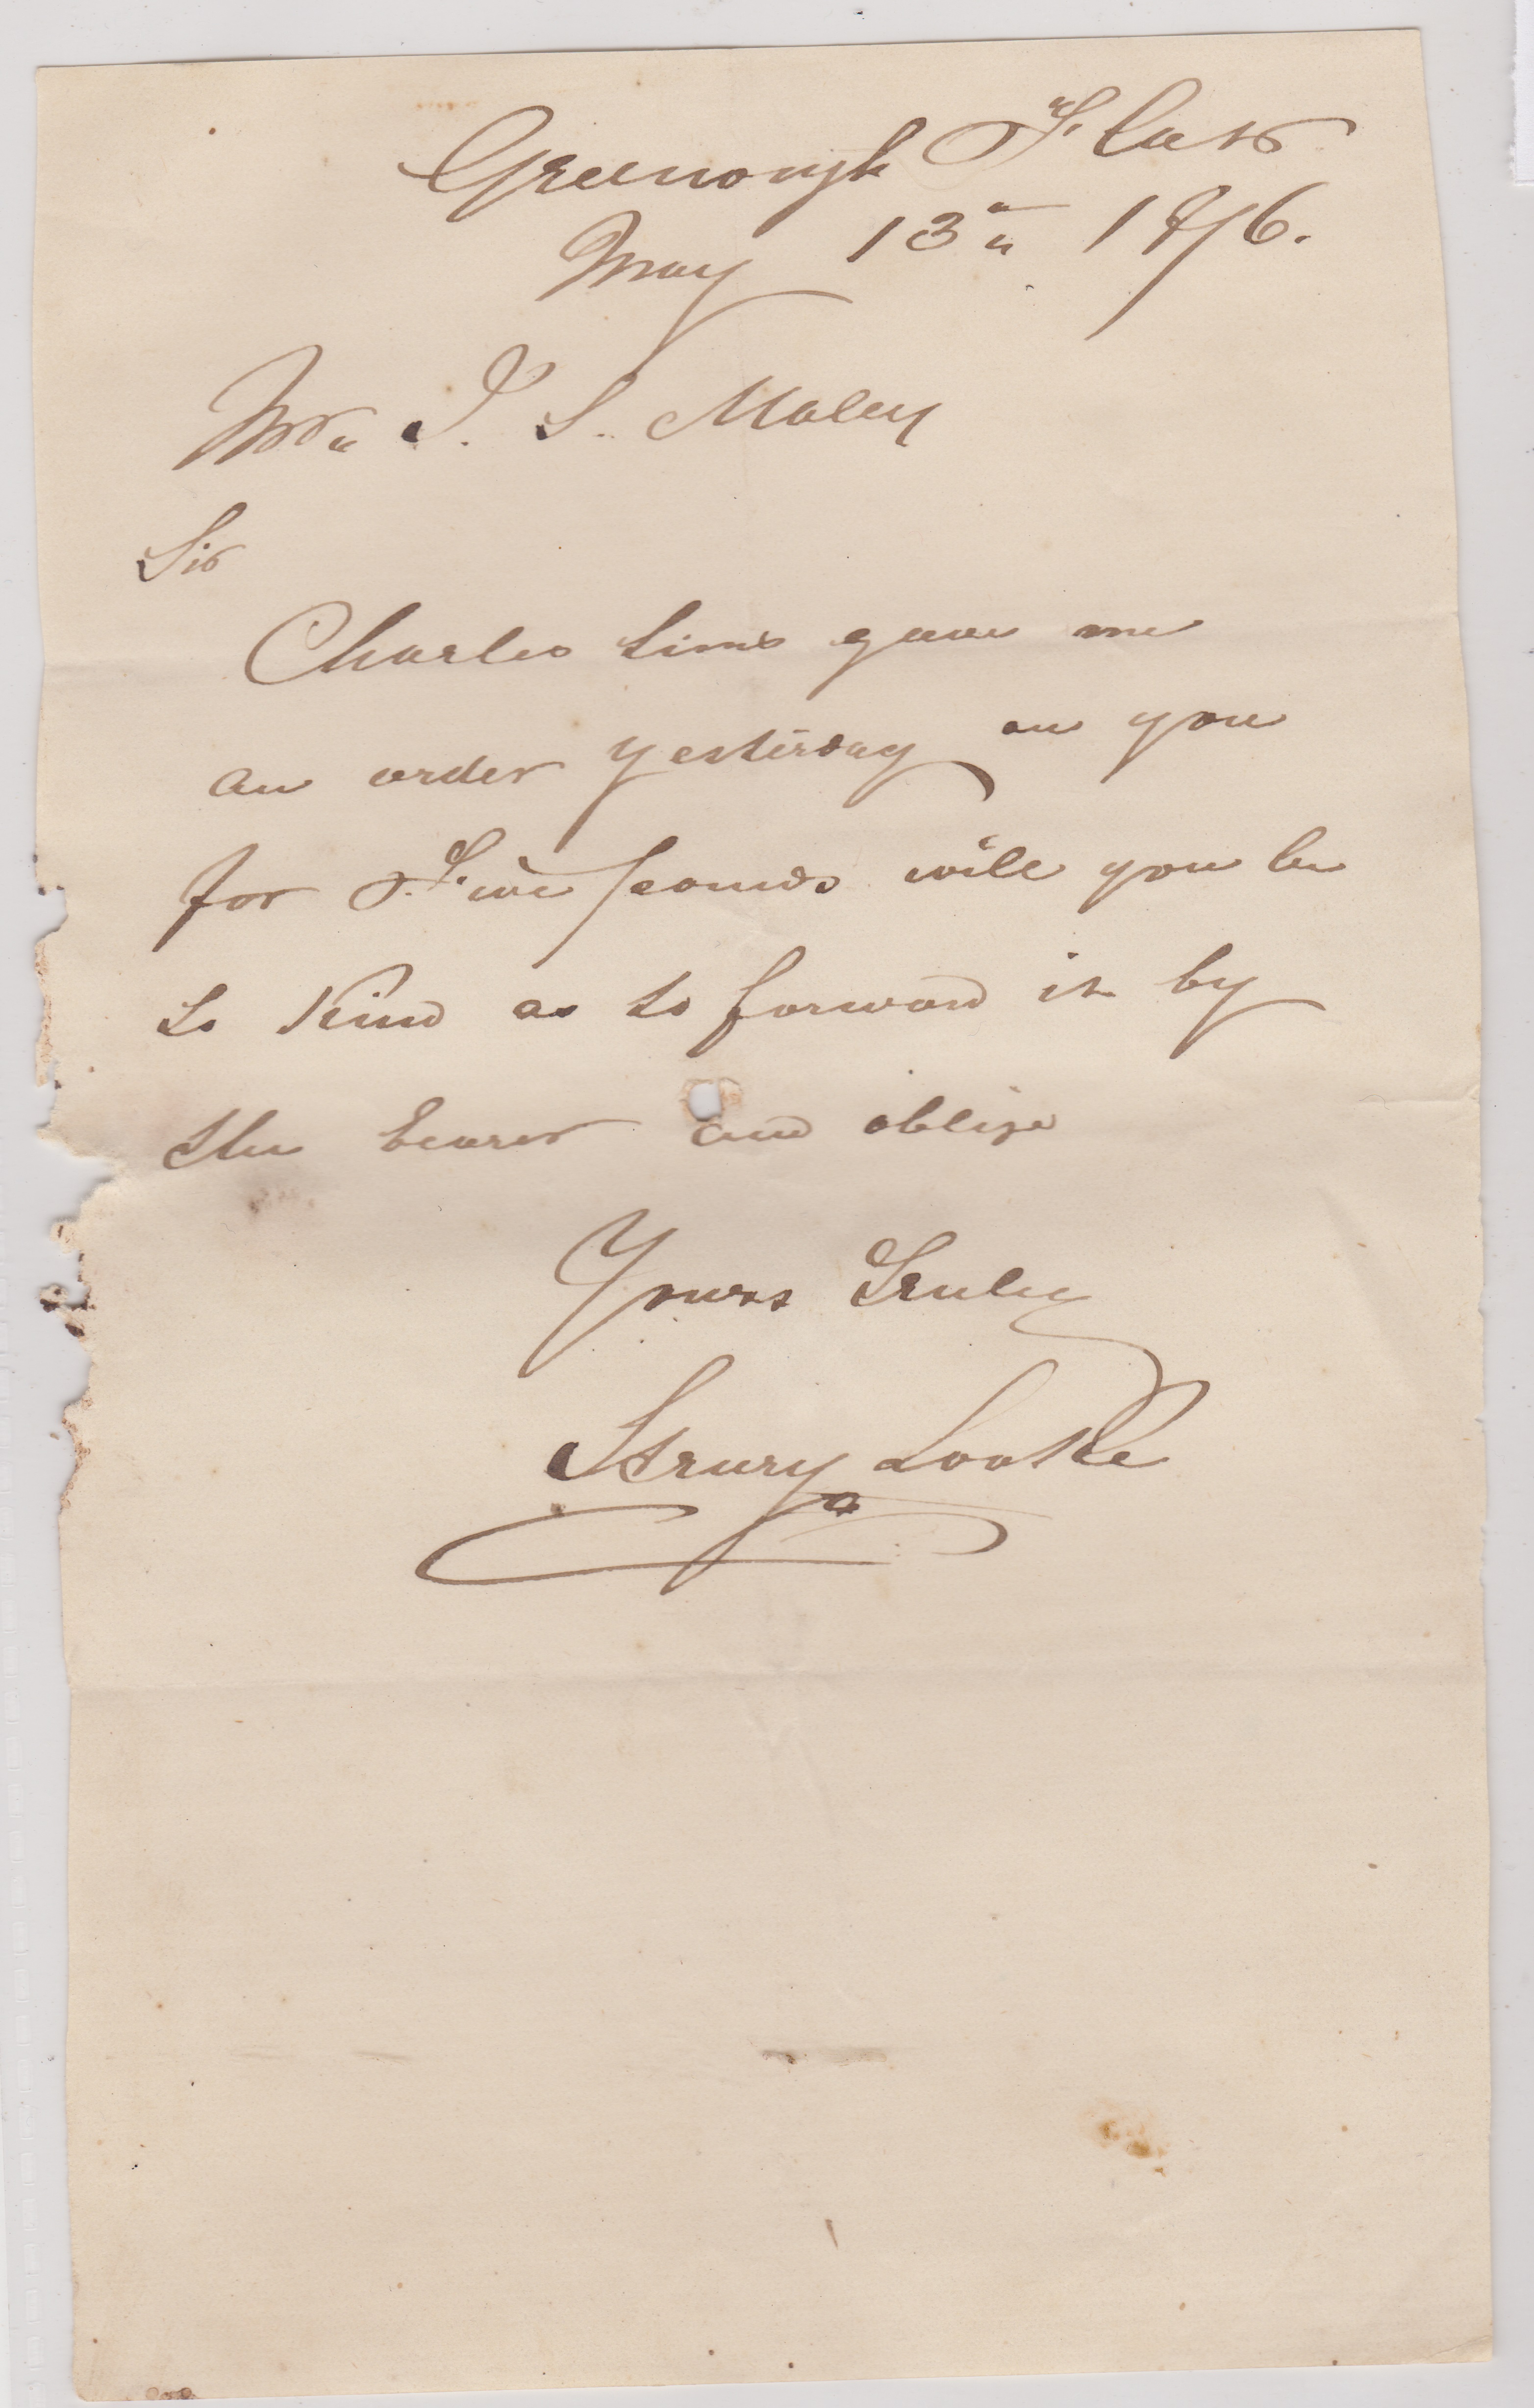 Greenough Flats
May 13th 1876.
Mr. J. S. Maley
Sir
Charles Sims gave me
an order yesterday on you
for Five pounds will you be
so Kind as to forward it by
the bearer and oblige
Yours Truly
Henry Cooke